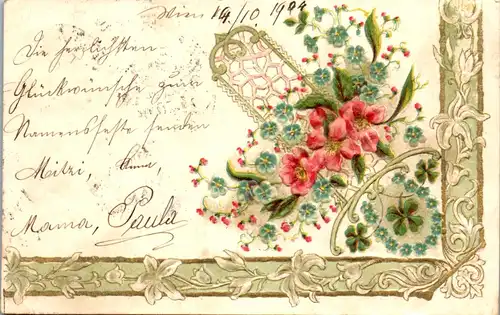 Wien 14/10 1904
Die herzlichsten
Glückwünsche zum
Namensfeste senden
Mitzi, Anna,
Mama, Paula